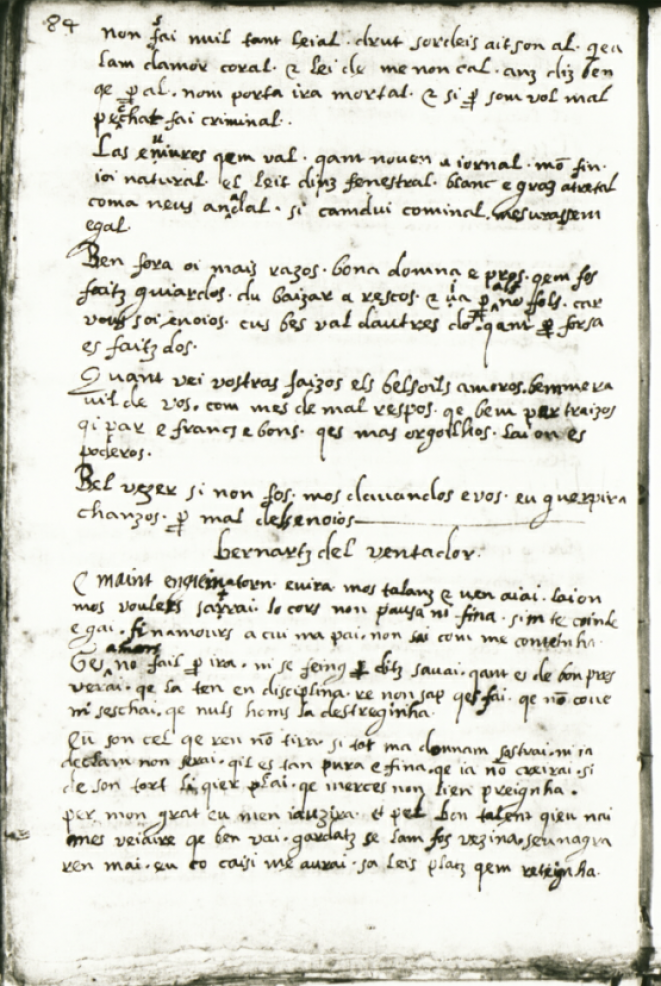 84
non fai nuil tant leial. drut sordeis aitson al. qea
lam damor coral. & lei de me non cal. anz diz ben
qe p al. nom porta ira mortal. & si p som vol mal
pechat fai criminal.
Las enuires qem val. qant no ven a iornal. mō fin.
ioi natural. el leit dinz fenestral. blanc e gras atretal
coma neus a nadal. si camdui cominal. mesurassem
egal.
Ben fora oi mais razos. bona domna e pros. qem fos
faitz guiardos. du baizar a rescos. & ia p als no fols. car
vous soi enoios. cus bes val dautres dos. qant p forsa
es faitz dos.
Quant vei vostras faizos els bels oils amoros. bem mera
uil de vos. com mes de mal respos. qe bem par traizos
qi par e francs e bons. qes mas orgoillios. lai on es
poderos.
Bel vezer si non fos. mos davandos e vos. eu guerpira
chanzos. p mal dels enoios
bernartz del ventador.
E maint engien matorn. e vira. mos talanz & ven aiai. lai on
mos voulers satrai. lo cors non pausa ni fina. sim te coinde
e gai. fin amours a cui ma pai. non sai com me contenha.
Ges amors no fail p ira. ni se feing p ditz savai. qant es de bon pres
verai. qe la ten en disciplina. re non sap qes fai. qe nō cove
ni seschai. qe nuls homs la destreginha.
Eu son cel qe ren nō tira. si tot ma domnam sostrai. ni ia
de clam non serai. qil es tan pura e fina. qe ia nō creirai. si
de son tort li qier plai. qe merces non lien preignha.
per mon grat eu men iauzira. et pel bon talent qieu nai
mes veiaire qe ben vai. gardatz se lam fos vezina. seu nagra
ren mai. eu co caisi me aurai. sa leis platz qem reteignha.